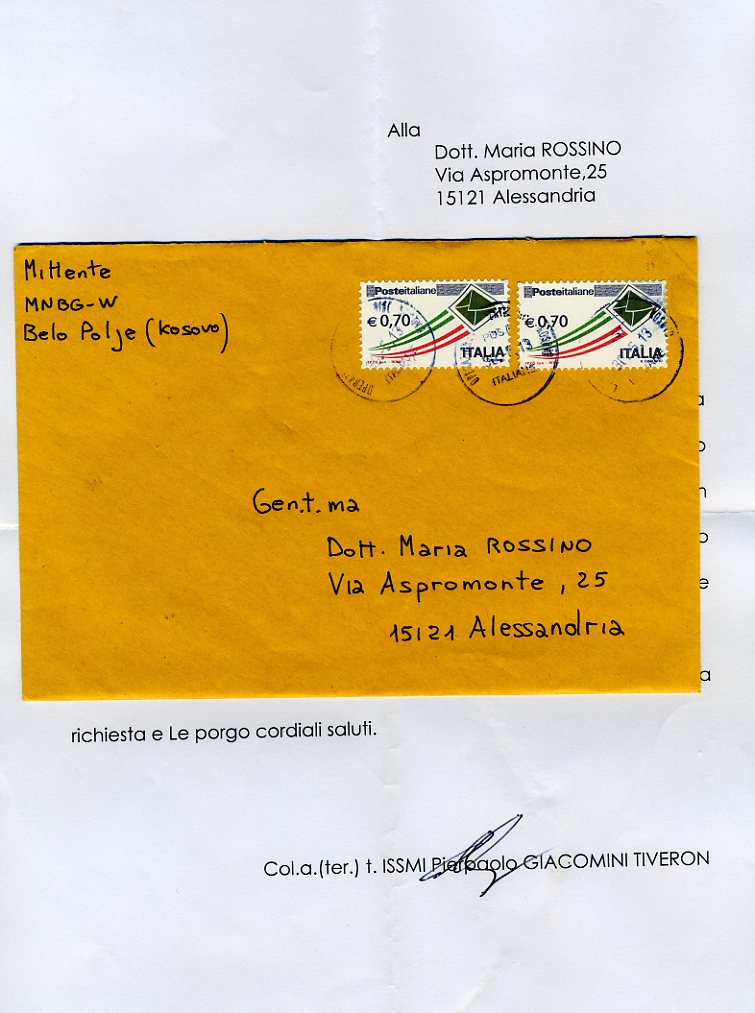 Alla
Dott. Maria ROSSINO
Via Aspromonte,25
15121 Alessandria
Mittente
MNBG-W
Belo Polje (Kosovo)
Posteitaliane
€ 0,70
ITALIA
Posteitaliane
€ 0,70
ITALIA
ITALIANE
Gen.t.ma
Dott. Maria ROSSINO
Via Aspromonte, 25
15121 Alessandria
a
o
n
o
e
a
richiesta e Le porgo cordiali saluti.
Col.a.(ter.) t. ISSMI Pierpaolo GIACOMINI TIVERON